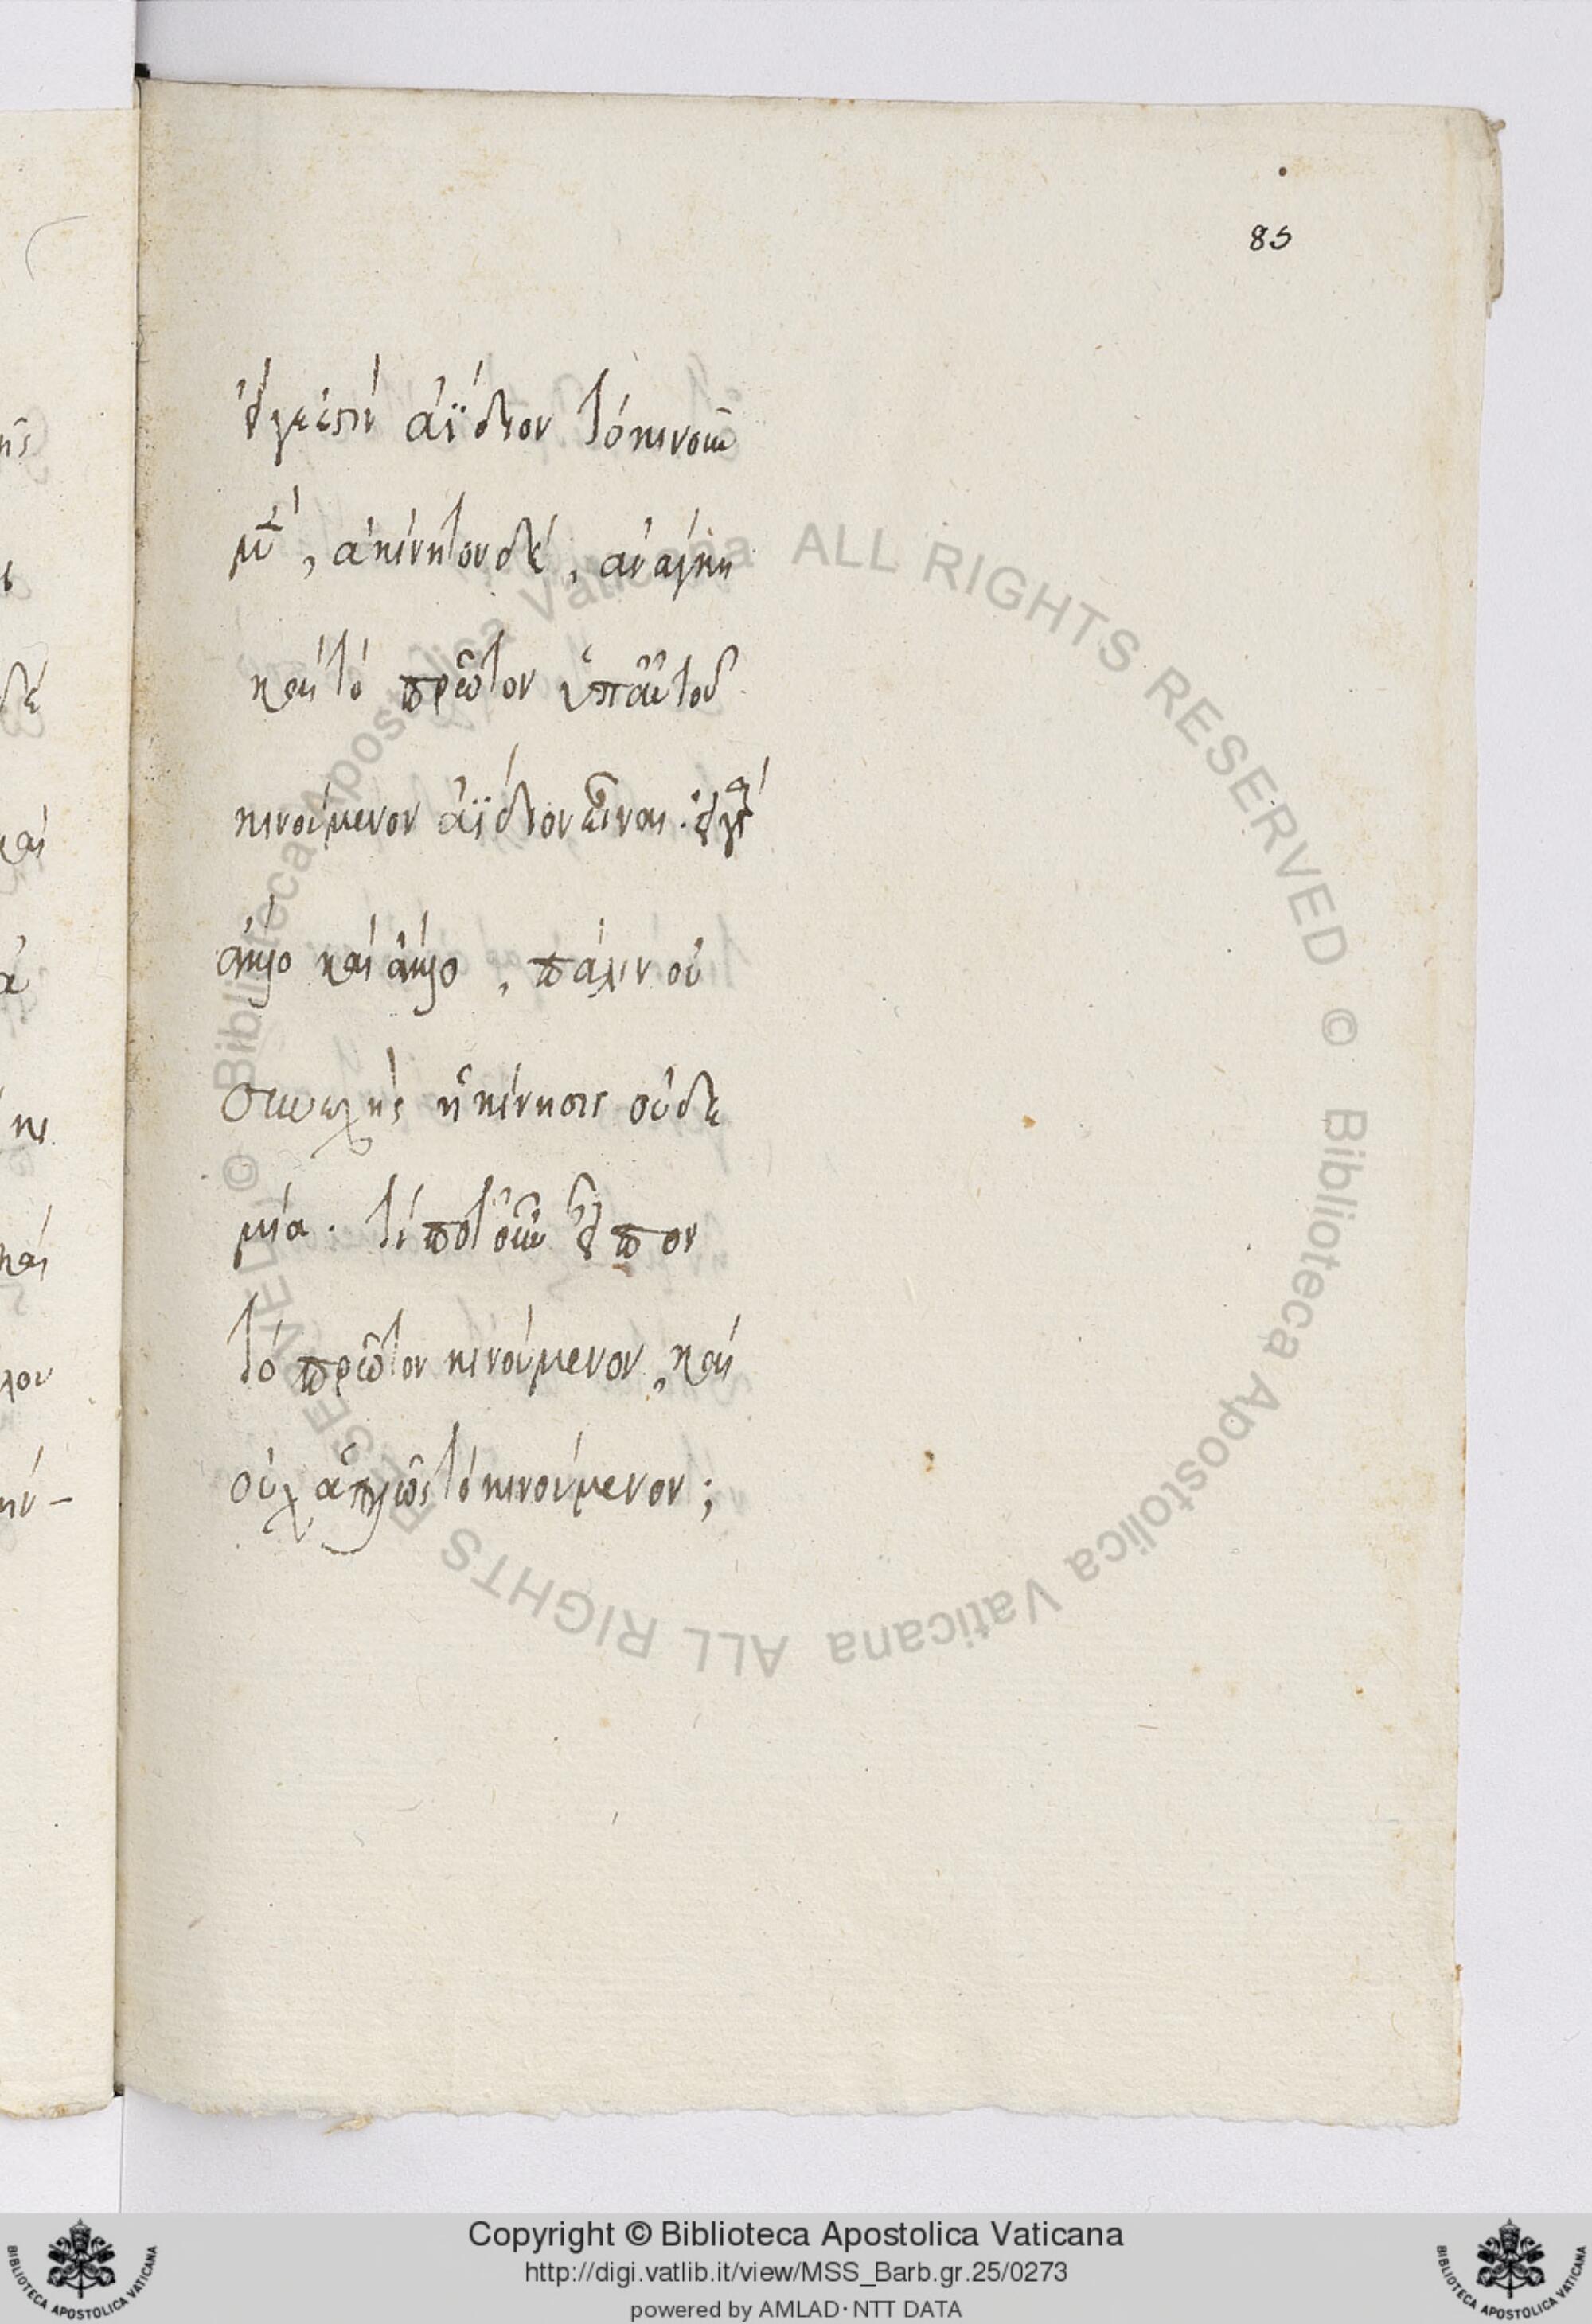 85
εἴ γε ἐστὶν ἀΐδιον τὸ κινοῦν
μὲν, ἀκίνητον δέ, ἀνάγκη
καὶ τὸ πρῶτον ὑπ' αὐτοῦ
κινούμενον ἀΐδιον εἶναι. εἰ γὰρ
ἄλλο καὶ ἄλλο, πάλιν οὐ
συνεχὴς ἡ κίνησις οὐδὲ
μία. τί ποτ' οὖν εἶπον
τὸ πρῶτον κινούμενον, καὶ
οὐχ ἁπλῶς τὸ κινούμενον;
© Biblioteca Apostolica Vaticana ALL RIGHTS RESERVED © Biblioteca Apostolica Vaticana ALL RIGHTS RESERVED
Copyright © Biblioteca Apostolica Vaticana
http://digi.vatlib.it/view/MSS_Barb.gr.25/0273
powered by AMLAD · NTT DATA
BIBLIOTECA APOSTOLICA VATICANA
BIBLIOTECA APOSTOLICA VATICANA